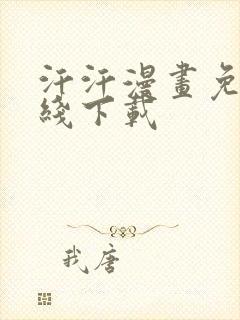 汗汗漫畫免
綫下載
我唐